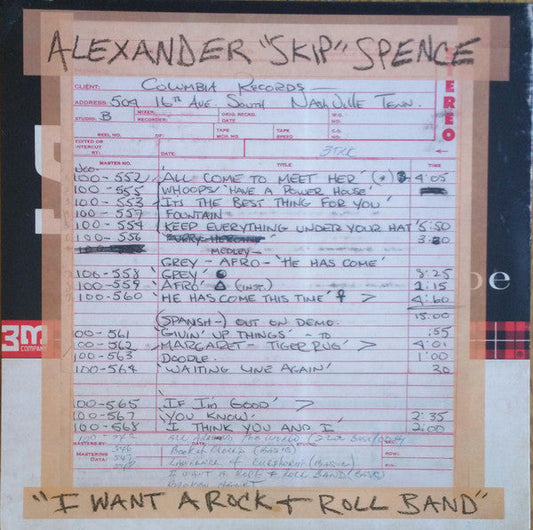 ALEXANDER "SKIP" SPENCE
CLIENT: COLUMBIA RECORDS
ADDRESS: 504 16TH AVE. SOUTH NASHVILLE TENN.
STUDIO: B MIXER: RECORDER: ORIG. RECKG. DATE: W.O. NO.
REEL NO. OF TAPE MCH. NO. TAPE SPEED C.O. NO.
EREO
EDITED OR INTERCUT BY: DATE: 3TRK
MASTER NO. TITLE TIME
100-552 'ALL COME TO MEET HER' 4:05
100-555 WHOOPS/'HAVE A POWER HOUSE'
100-553 'ITS THE BEST THING FOR YOU'
100-557 FOUNTAIN
100-554 'KEEP EVERYTHING UNDER YOUR HAT' 5:50
100-556 'FURRY HEROINE'
MEDLEY-
GREY - AFRO - 'HE HAS COME'
100-558 'GREY' 8:25
100-559 'AFRO' (INST.) 2:15
100-560 'HE HAS COME THIS TIME' > 4:60
(SPANISH-) OUT ON DEMO. 15:00
100-561 'GIVIN' UP THINGS' TO :55
100-562 'MARGARET - TIGER RUG' > 4:01
100-563 DOODLE. 1:00
100-564 'WAITING LINE AGAIN' 30
100-565 'IF I'M GOOD' >
100-567 'YOU KNOW' 2:35
100-568 'I THINK YOU AND I' 2:00
ALL AROUND THE WORLD
MASTERED BY
MASTERING DATA:
I WANT A ROCK & ROLL BAND
3M
COMPANY
be
"I WANT A ROCK + ROLL BAND"